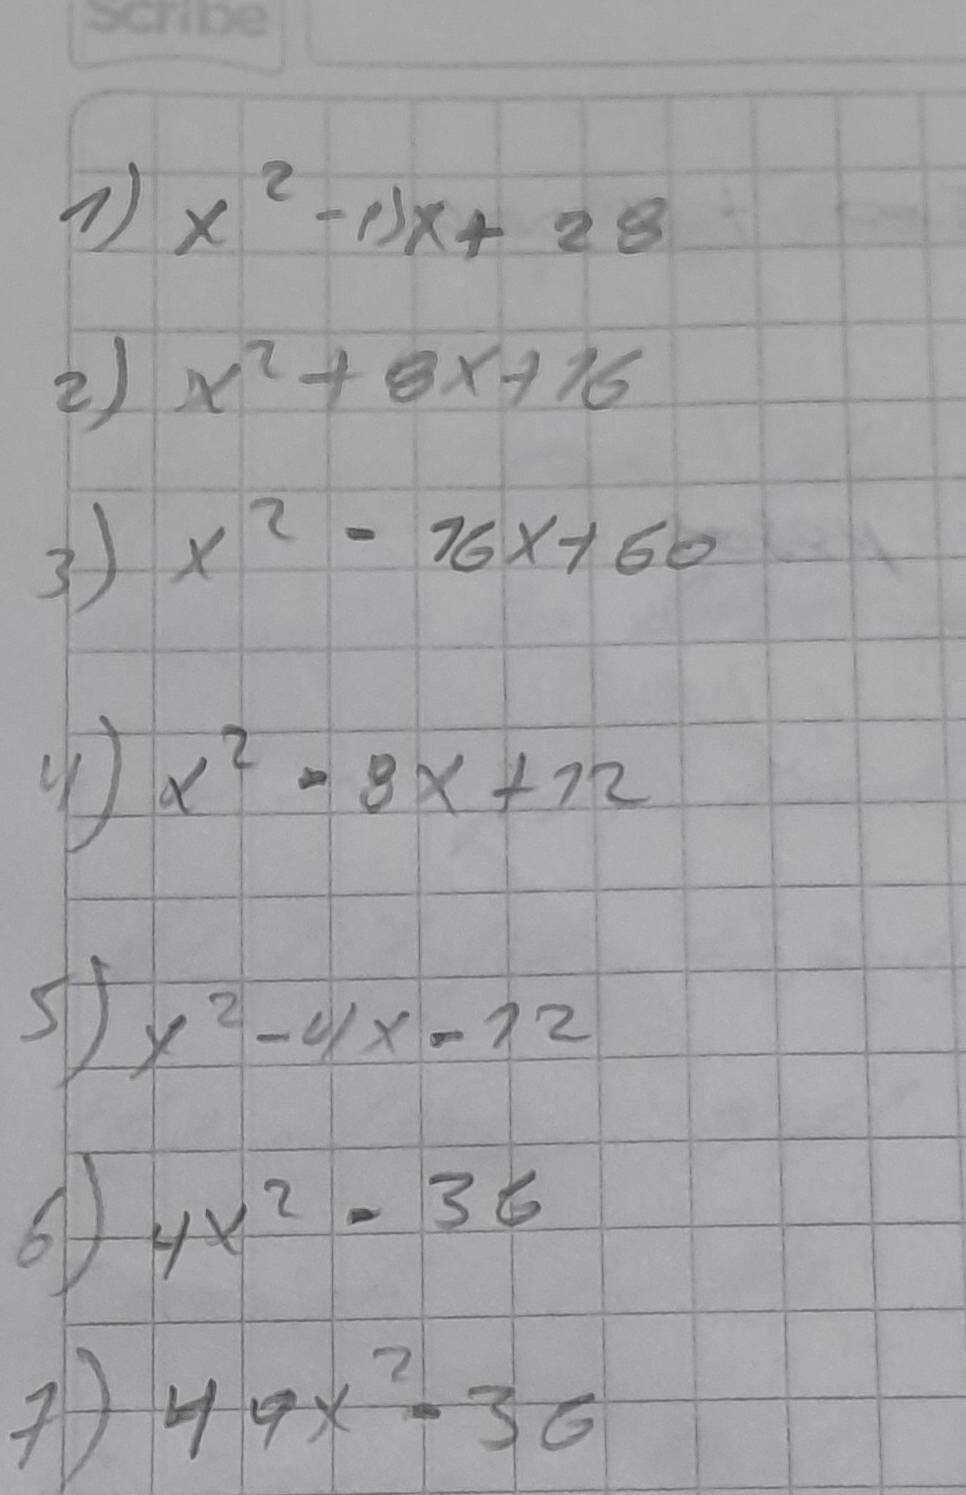 Scribe
1) x² -11x + 28
2) x² + 8x + 16
3) x² - 16x + 60
4) x² - 8x + 12
5) x² - 4x - 12
6) 4x² - 36
7) 49x² - 36